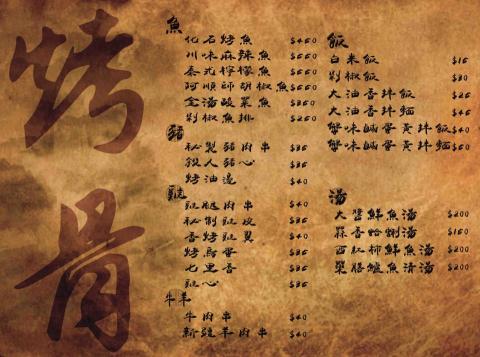 烤
骨
魚
化石烤魚 $450
川味麻辣魚 $550
泰式檸檬魚 $550
阿順師胡椒魚 $550
金湯酸菜魚 $350
剁椒魚排 $250
豬
秘製豬肉串 $35
殺人豬心 $35
烤油邊 $40
雞
雞腿肉串 $40
秘制雞皮 $35
香烤雞翼 $40
烤鳥蛋 $35
七里香 $35
雞心 $35
牛羊
牛肉串 $40
新疆羊肉串 $40
飯
白米飯 $15
剁椒飯 $30
大油香拌飯 $25
大油香拌麵 $45
蟹味鹹蛋黃拌飯 $40
蟹味鹹蛋黃拌麵 $50
湯
大醬鮮魚湯 $200
蒜香蛤蜊湯 $150
西紅柿鮮魚湯 $200
藥膳鱸魚清湯 $200